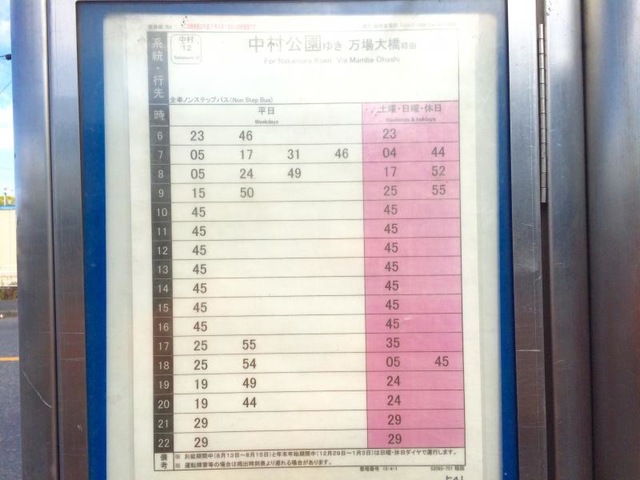 系統・行先
中村
12
中村公園ゆき 万場大橋経由
For Nakamura Koen Via Mamba Ohashi
全車ノンステップバス(Non Step Bus)
時 平日 土曜・日曜・休日
Weekdays Weekends & holidays
6 23 46 23
7 05 17 31 46 04 44
8 05 24 49 17 52
9 15 50 25 55
10 45 45
11 45 45
12 45 45
13 45 45
14 45 45
15 45 45
16 45 45
17 25 55 35
18 25 54 05 45
19 19 49 24
20 19 44 24
21 29 29
22 29 29
備考
お盆期間中(8月13日~8月15日)と年末年始期間中(12月29日~1月3日)は日曜・休日ダイヤで運行します。
運転障害等の場合は掲出時刻表より遅れる場合があります。